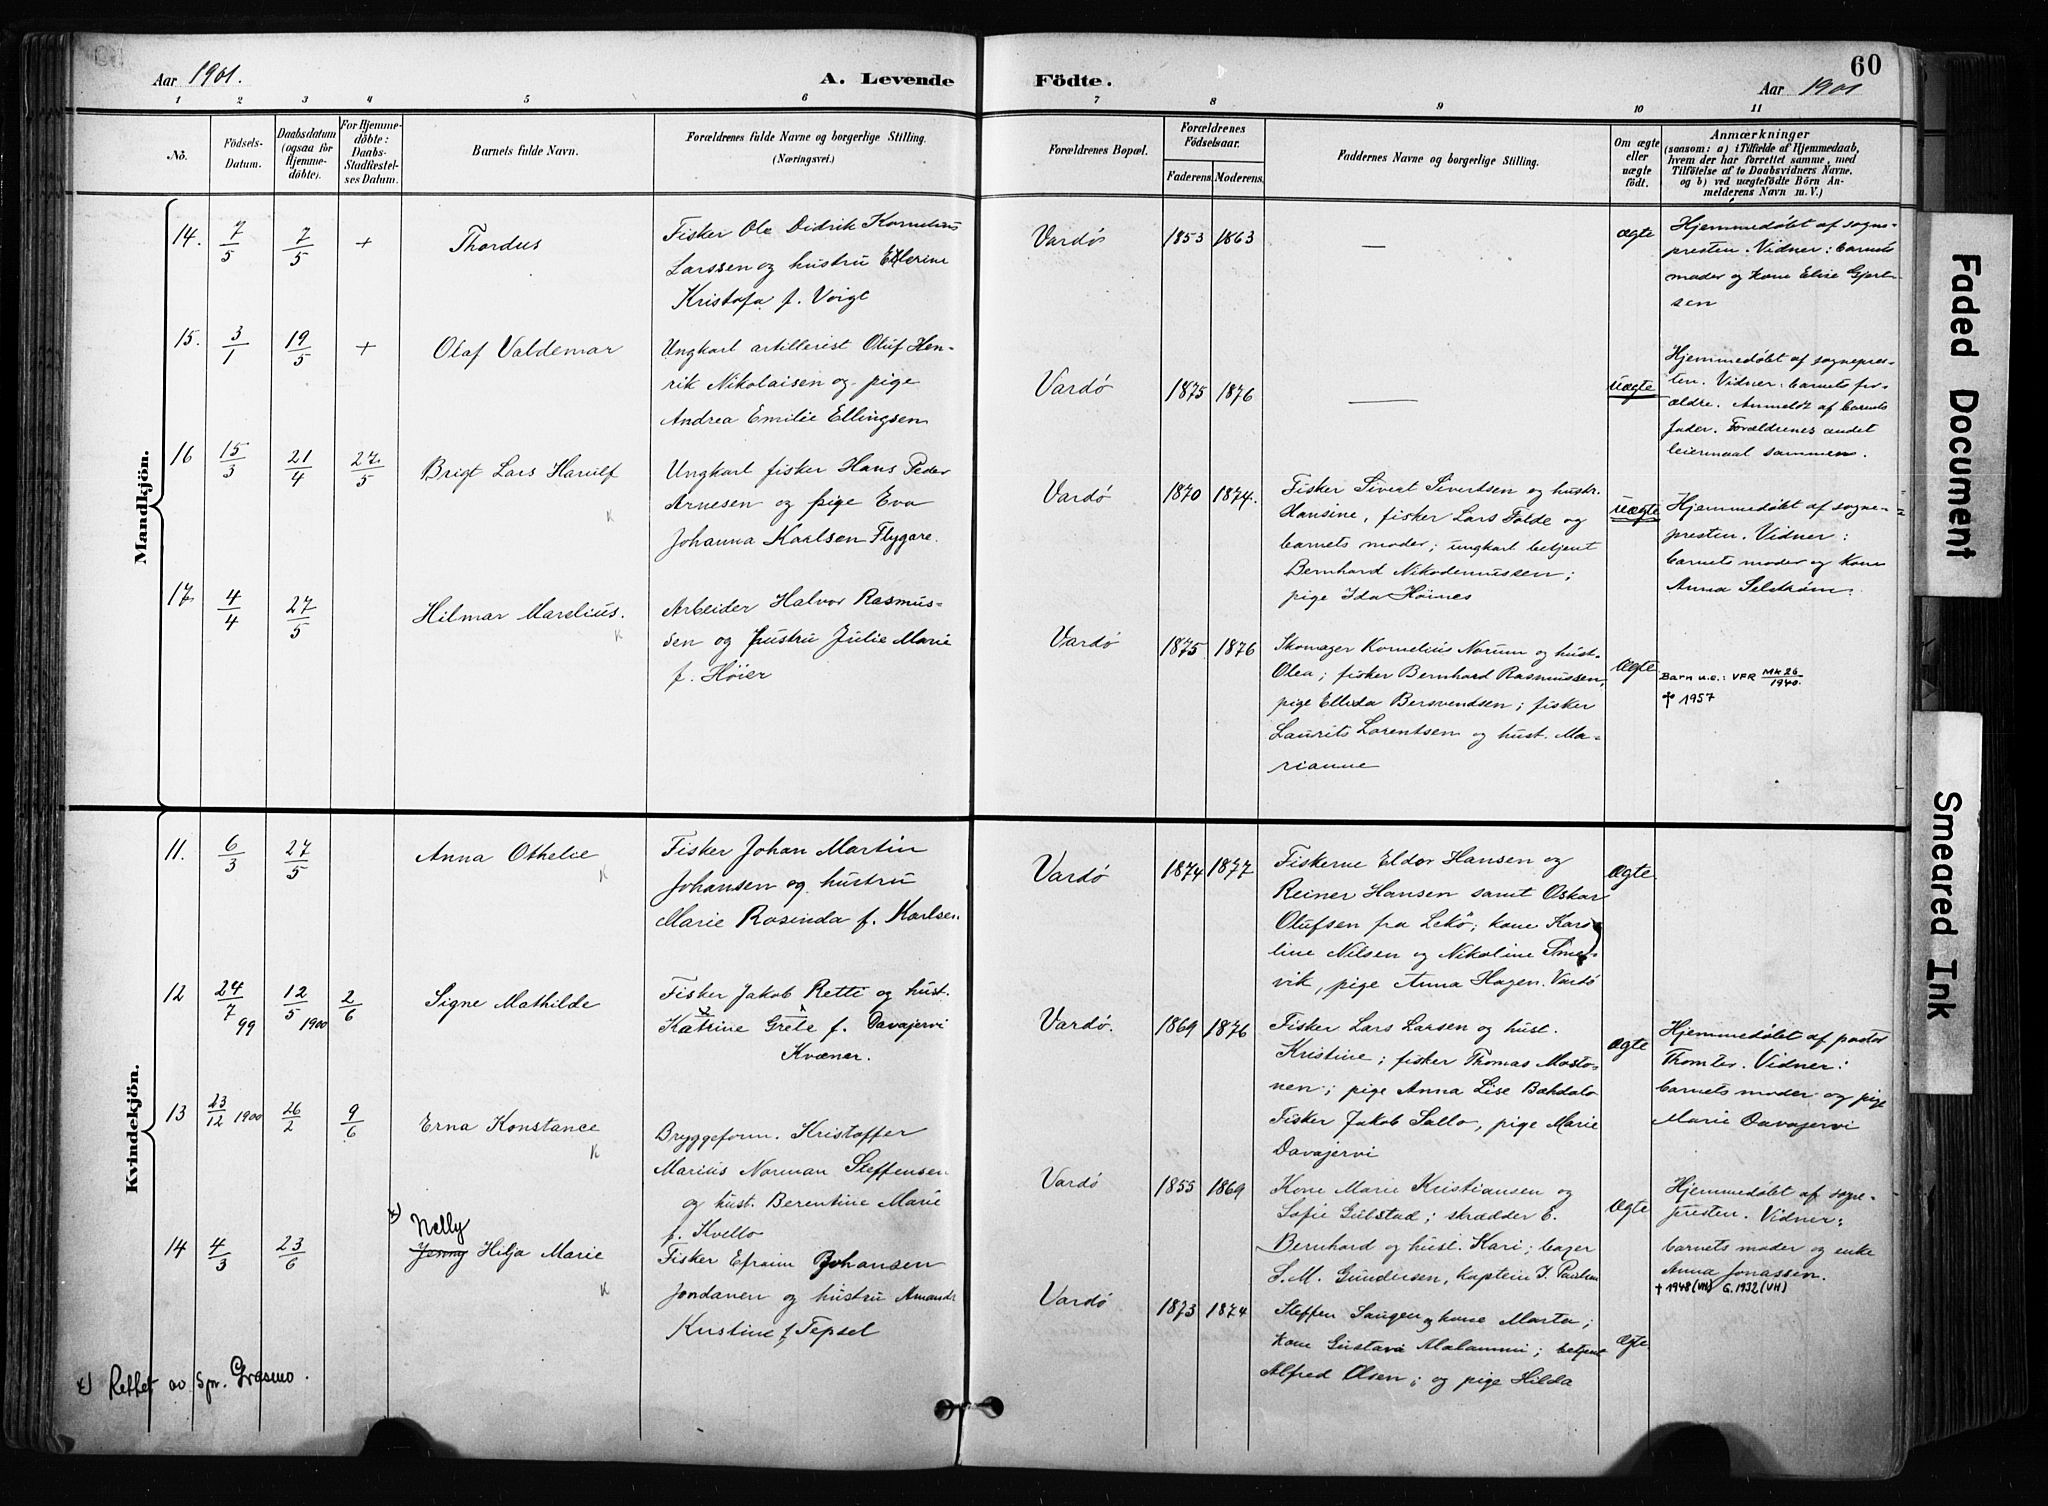 Aar 1901.
A. Levende
Födte.
60
Aar 1901
1 2 3 4 5 6 7 8 9 10 11
No.
Födsels-
Datum.
Daabsdatum
(ogsaa for
Hjemme-
döbte).
For Hjemme-
döbte:
Daabs-
Stadfæstel-
ses Datum.
Barnets fulde Navn.
Forældrenes fulde Navne og borgerlige Stilling.
(Næringsvei.)
Forældrenes Bopæl.
Forældrenes
Födselsaar.
Faderens. Moderens.
Faddernes Navne og borgerlige Stilling.
Om ægte
eller
uægte
födt.
Anmærkninger
(saasom: a) i Tilfælde af Hjemmedaab,
hvem der har forrettet samme, med
Tilföielse af to Daabsvidners Navne,
og b) ved uægtefödte Börn An-
melderens Navn m. V.)
Mandkjön.
14. 7/5 7/5 + Thordus
Fisker Ole Didrik Kornelius
Larssen og hustru
Kristofa f. Voigt
Vardø 1853 1863 — ægte
Hjemmedøbt af sogne-
presten. Vidner: barnets
moder og kone Elise Gjert-
sen
15. 3/1 19/5 + Olaf Valdemar
Ungkarl artillerist Oluf Hen-
rik Nikolaisen og pige
Andrea Emilie Ellingsen
Vardø 1875 1876 — uægte
Hjemmedøbt af sognepres-
ten. Vidner: barnets for-
ældre. Anmeldt af barnets
fader. Forældrenes andet
leiermaal sammen.
16 15/3 21/4 27/5 Brigt Lars Harulf
K
Ungkarl fisker Hans Peder
Arnesen og pige Eva
Johanna Karlsen Flygare.
Vardø 1870 1874.
Fisker Sivert Sivertsen og hustr.
Hansine, fisker Lars Folde og
barnets moder; ungkarl betjent
Bernhard Nikodemussen;
pige Ida Høines
uægte
Hjemmedøbt af sogne-
presten. Vidner:
barnets moder og kone
Anna Selstrøm.
17. 4/4 27/5 Hilmar Marelius.
K
Arbeider Halvor Rasmus-
sen og hustru Julie Marie
f. Höier
Vardø 1875. 1876
Skomager Kornelius Norum og hust.
Olea; fisker Bernhard Rasmussen,
pige Ellida Bersvendsen; fisker
Laurits Lorentsen og hust. Ma-
rianne
Ægte
Barn u.e.: VFR Mk 26/1940.
✝ 1957
Kvindekjön.
11. 6/3 27/5 Anna Othelie
K
Fisker Johan Martin
Johansen og hustru
Marie Rosinda f. Karlsen.
Vardø 1874 1877
Fiskerne Eldor Hansen og
Reiner Hansen samt Oskar
Olufsen fra Lekö; kone Karo
line Nilsen og Nikoline Sme-
vik, pige Anna Hagen. Vardö
Ægte
12 24/7 99 12/5 1900 2/6 Signe Mathilde
Fisker Jakob Retti og hust.
Katrine Grete f. Davajervi
Kvæner.
Vardø. 1869 1876
Fisker Lars Larsen og hust.
Kristine; fisker Thomas Mosto-
nen; pige Anna Lise Bahdalo
Fisker Jakob Sallo, pige Marie
Davajervi
Ægte
Hjemmedøbt af pastor
Thomter. Vidner:
barnets moder og pige
Marie Davajervi
13 23/12 1900 26/2 9/6 Erna Konstance
K
Bryggeform. Kristoffer
Marius Norman Steffensen
og hust. Berentine Marie
f. Kvello
Vardø 1855 1869
Kone Marie Kristiansen og
Sofie Gulstad; skrædder E.
Bernhard og hust. Kari; bager
S. M. Gundersen, kaptein J. Paulsen
Ægte
Hjemmedøbt af sogne-
presten. Vidner:
barnets moder og enke
Anna Jonassen.
✝ 1948 (VH) G. 1932 (VH)
x) Nelly
14 4/3 23/6 Jenny Hilja Marie
K
Fisker Efraim Johansen
Jondanen og hustru Amanda
Kristine f. Tepsel
Vardø 1873 1874
Steffen og kone Marta;
kone Gustava Alalammi; betjent
Alfred Olsen; og pige Hilda
ægte
x) Rettet av Spr. Grasmo.
Faded Document
Smeared Ink